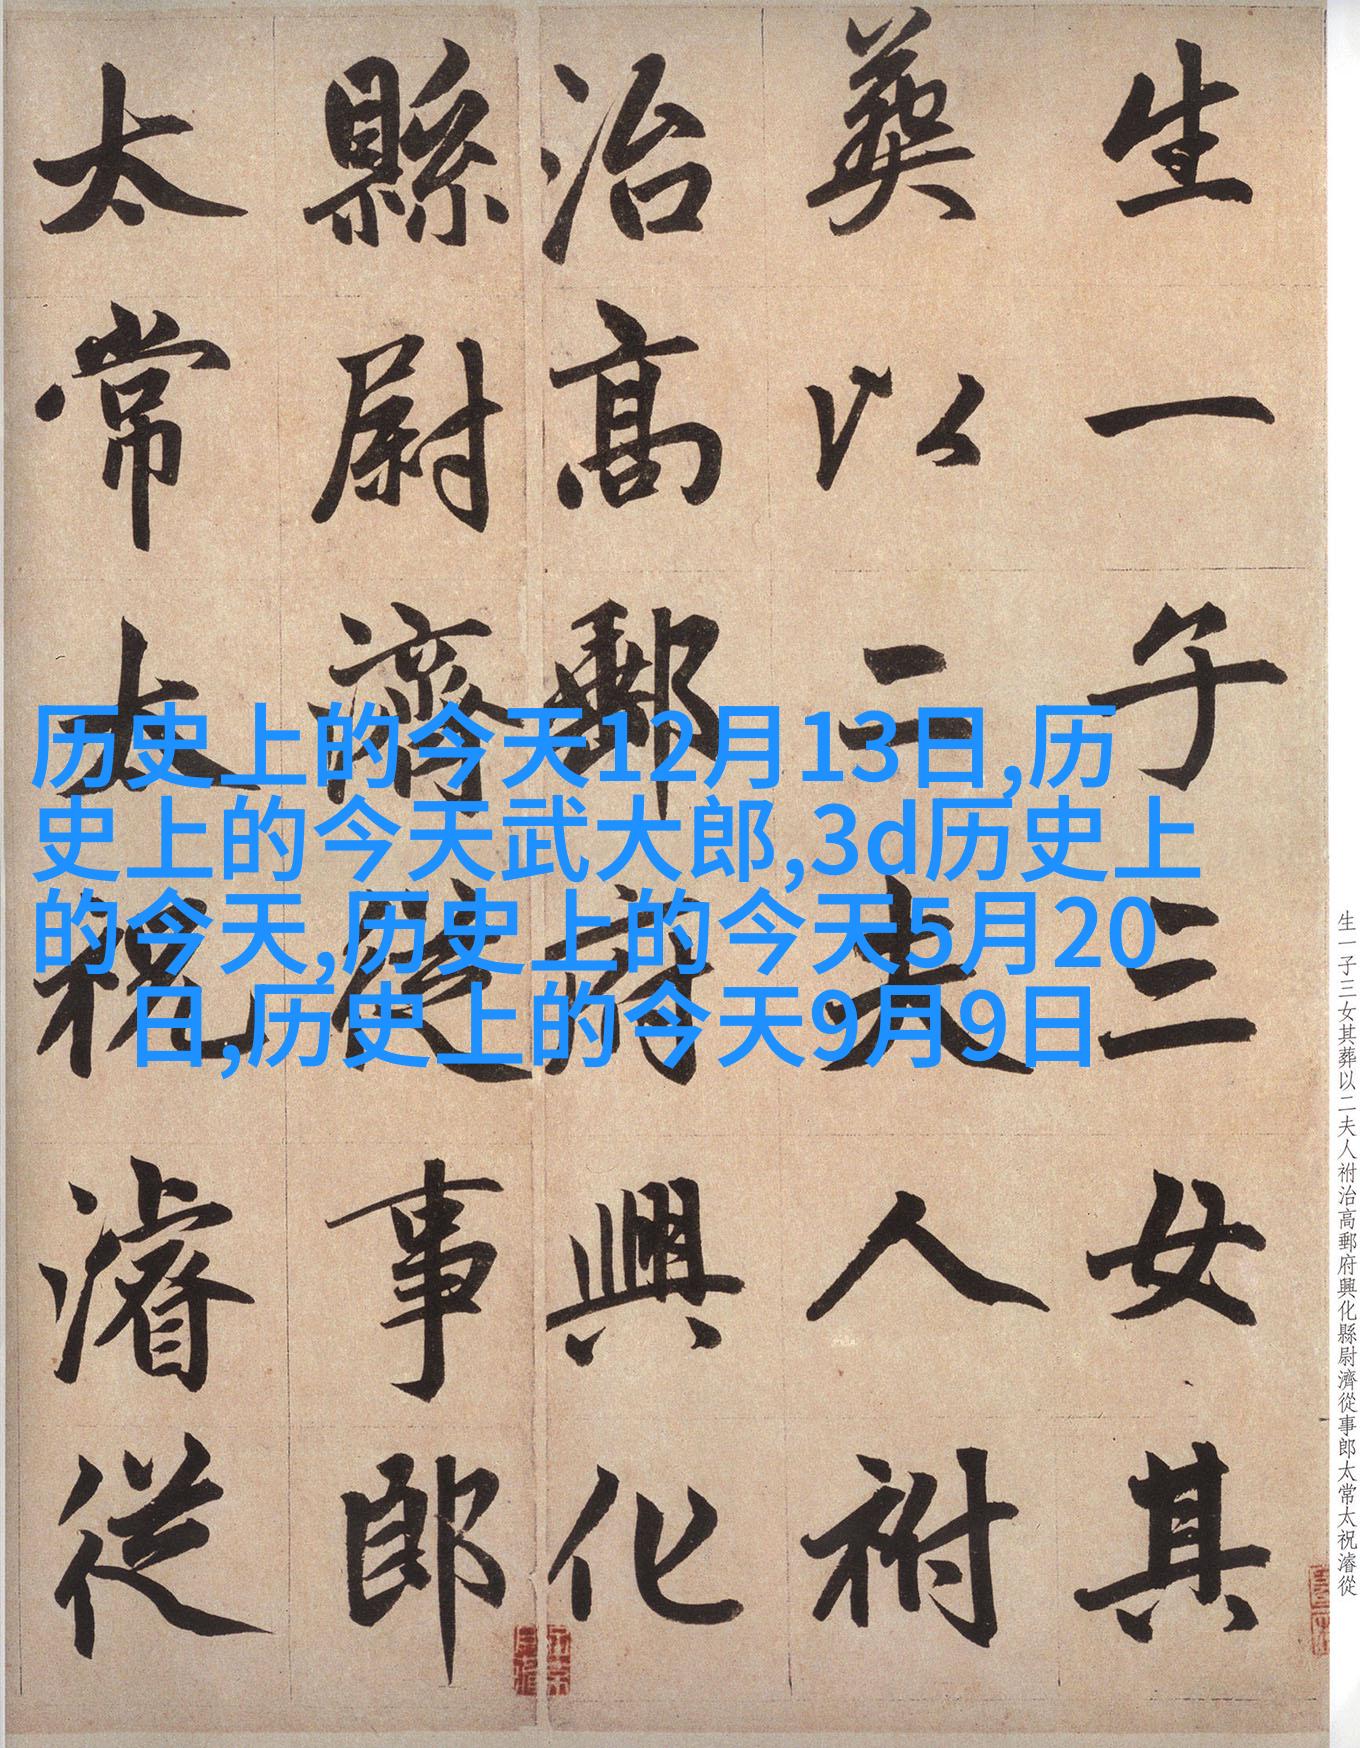 生一子三女其
葬以二夫人祔
治高郵府興化
縣尉濟從事郎
太常太祝濬從
历史上的今天12月13日,历
史上的今天武大郎,3d历史上
的今天,历史上的今天5月20
日,历史上的今天9月9日
生一子三女其葬以二夫人祔治高郵府興化縣尉濟從事郎太常太祝濬從